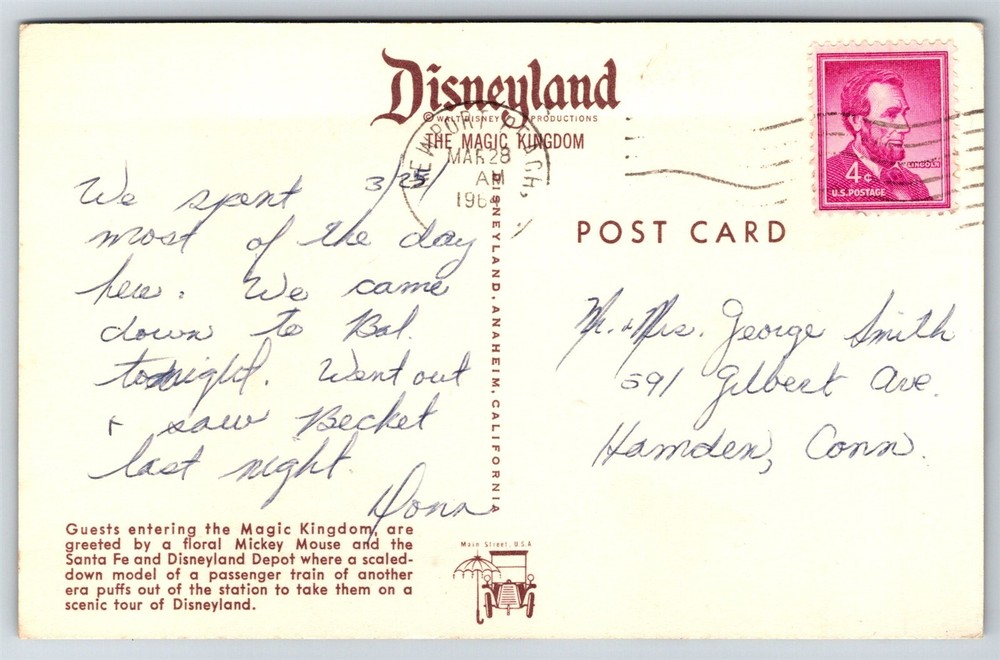 Disneyland
© WALT DISNEY PRODUCTIONS
THE MAGIC KINGDOM
NEWPORT BEACH,
MAR 28
AM
LINCOLN
4¢
U.S. POSTAGE
POST CARD
We spent
most of the day
here. We came
down to Bal.
tonight. Went out
+ saw Becket
last night.
Donn
DISNEYLAND, ANAHEIM, CALIFORNIA
Mr. & Mrs. George Smith
591 Gilbert Ave.
Hamden, Conn.
Guests entering the Magic Kingdom, are
greeted by a floral Mickey Mouse and the
Santa Fe and Disneyland Depot where a scaled-
down model of a passenger train of another
era puffs out of the station to take them on a
scenic tour of Disneyland.
Main Street, U.S.A